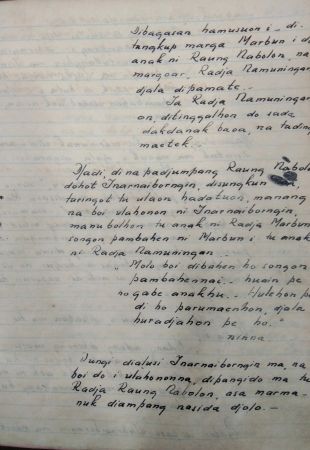 Dibagasan hamusuon i - di-
tangkup marga Marbun i do
anak ni Raung Nabolon, na
margoar, Radja Namuningan
djala dipamate. -
Ia Radja Namuningan
on, ditinggalhon do sada
dakdanak baoa, na tading
maetek. -
Djadi, di na padjumpang Raung Nabolon
dohot Inarnaiborngin, disungkun
taringot tu ulaon hadatuon, manang
na boi ulahonon ni Inarnaiborngin,
manubolhon tu anak ni Radja Marbun
songon pambahen ni Marbun i tu anak
ni Radja Namuningan. -
" Molo boi dibahen ho songon
pambahennai - huain pe
ho gabe anakhu. - Hutehon pe
di ho parumaenhon, djala
huradjahon pe ho."
ninna
Dungi dialusi Inarnaiborngin ma, na
boi do i ulahononna, dipangido ma tu
Radja Raung Nabolon, asa marma-
nuk diampang nasida djolo. -